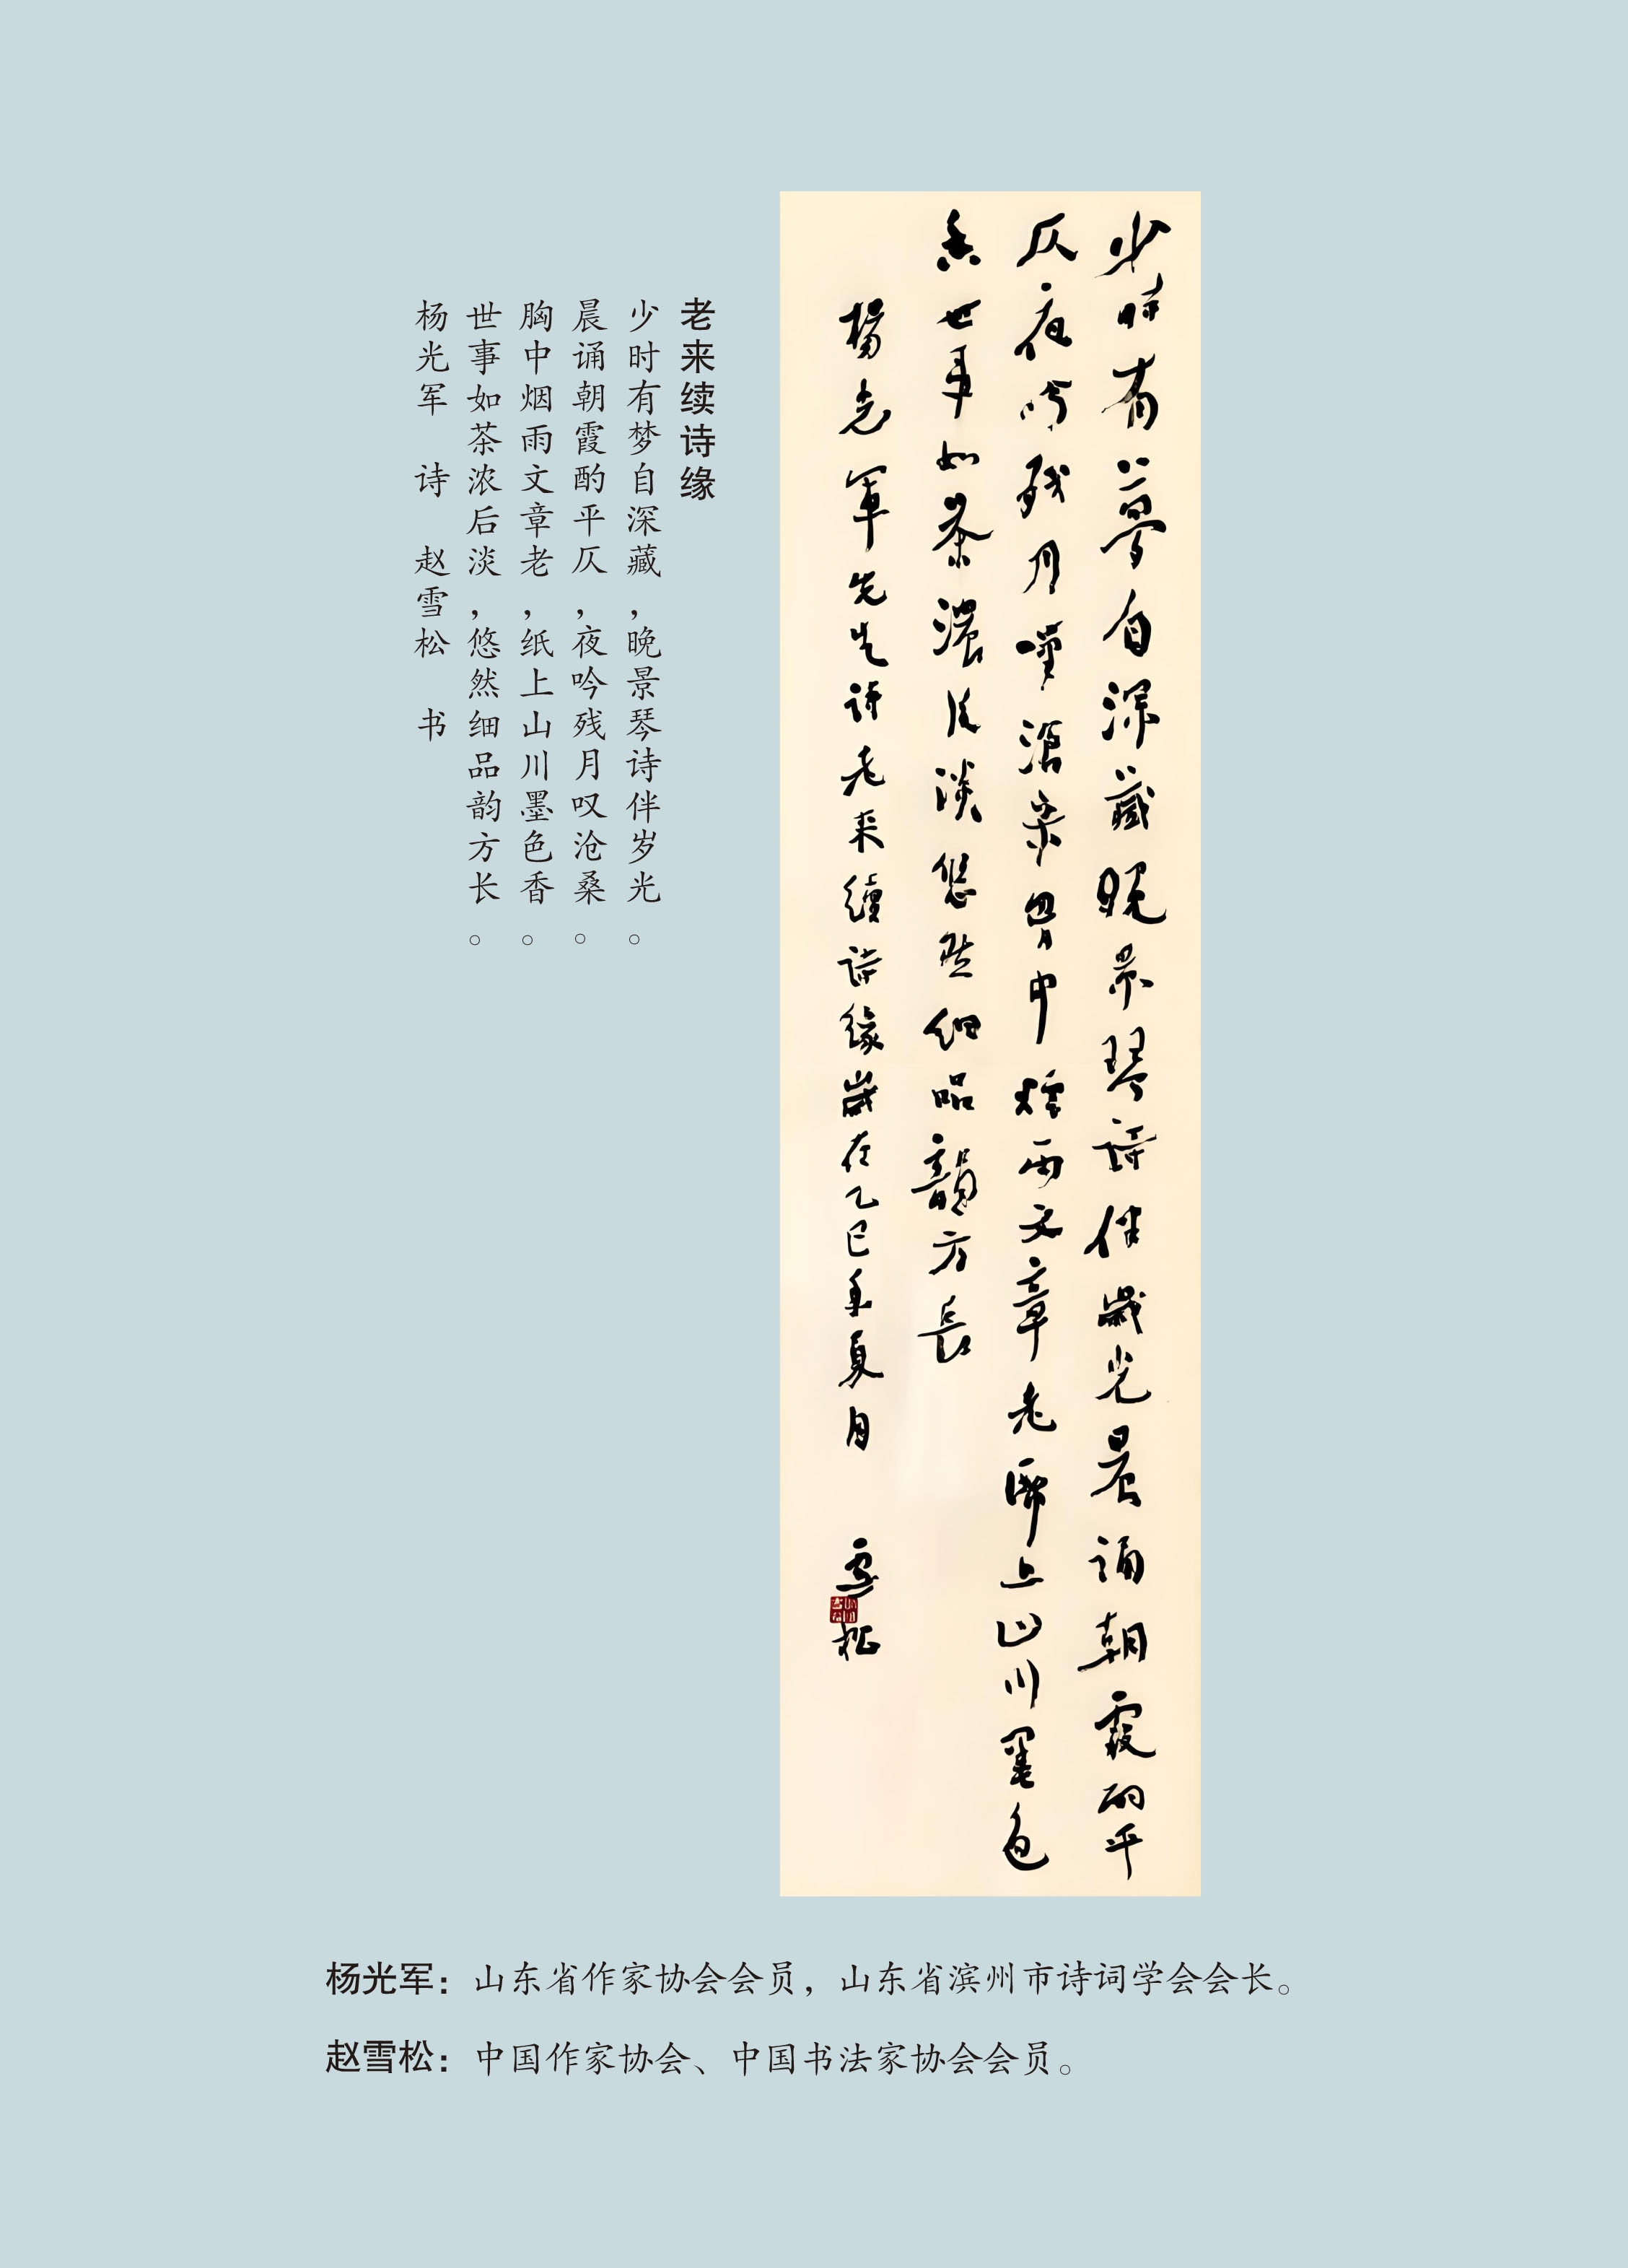 少時有夢自深藏晚景琴詩伴歲光晨誦朝霞酌平
仄夜吟残月嘆滄桑胷中煙雨文章老紙上山川墨色
香世事如茶濃後淡悠然细品韻方長
楊光軍先生詩老来續詩緣歲在乙巳年夏月 雪松
老来续诗缘
少时有梦自深藏，晚景琴诗伴岁光。
晨诵朝霞酌平仄，夜吟残月叹沧桑。
胸中烟雨文章老，纸上山川墨色香。
世事如茶浓后淡，悠然细品韵方长。
杨光军 诗 赵雪松 书
杨光军：山东省作家协会会员，山东省滨州市诗词学会会长。
赵雪松：中国作家协会、中国书法家协会会员。